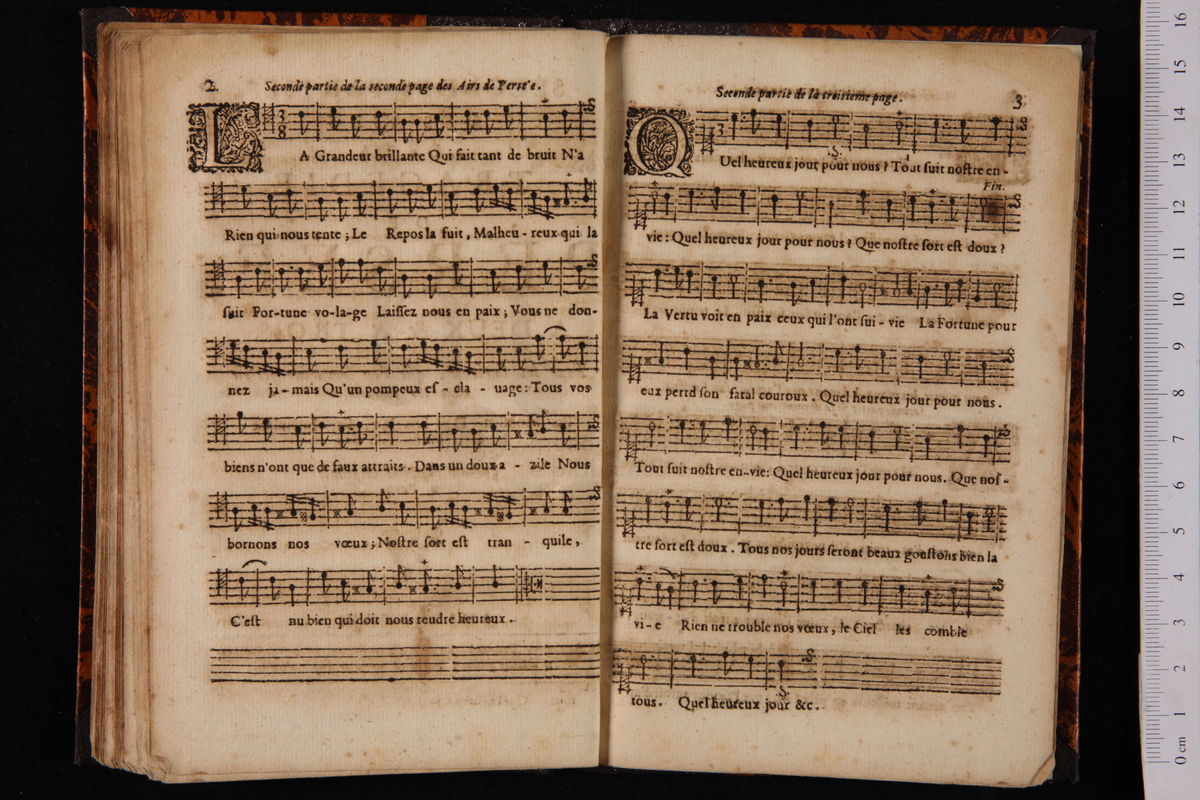 2. Seconde partie de la seconde page des Airs de Persé'e.
LA Grandeur brillante Qui fait tant de bruit N'a
Rien qui nous tente ; Le Repos la fuit, Malheu - reux qui la
suit For-tune vo-la-ge Laissez nous en paix ; Vous ne don-
nez ja - mais Qu'un pompeux es - cla - uage : Tous vos
biens n'ont que de faux attraits. Dans un doux a - zile Nous
bornons nos vœux ; Nostre sort est tran - quile,
C'est nu bien qui doit nous reudre heureux.
Seconde partie de la troisieme page. 3.
QUel heureux jour pour nous ? Tout suit nostre en -
Fin.
vie : Quel heureux jour pour nous ? Que nostre sort est doux ?
La Vertu voit en paix ceux qui l'ont sui - vie La Fortune pour
eux perd son fatal couroux. Quel heureux jour pour nous.
Tout suit nostre en-vie: Quel heureux jour pour nous. Que nos-
tre sort est doux. Tous nos jours seront beaux goustons bien la
vi - e Rien ne trouble nos vœux, le Ciel les comble
tous. Quel heureux jour &c.
0 cm 1 2 3 4 5 6 7 8 9 10 11 12 13 14 15 16